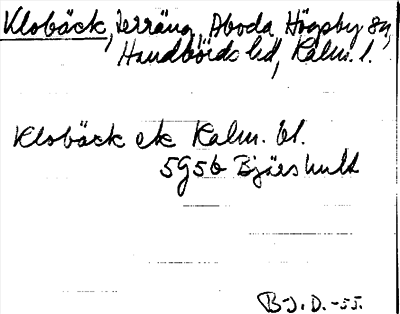 Klobäck, terräng, Aboda, Högsby sn,
Handbörds hd, Kalm. l.
Klobäck ek Kalm. bl.
5G5b Bjärshult
B-J. D. -55.